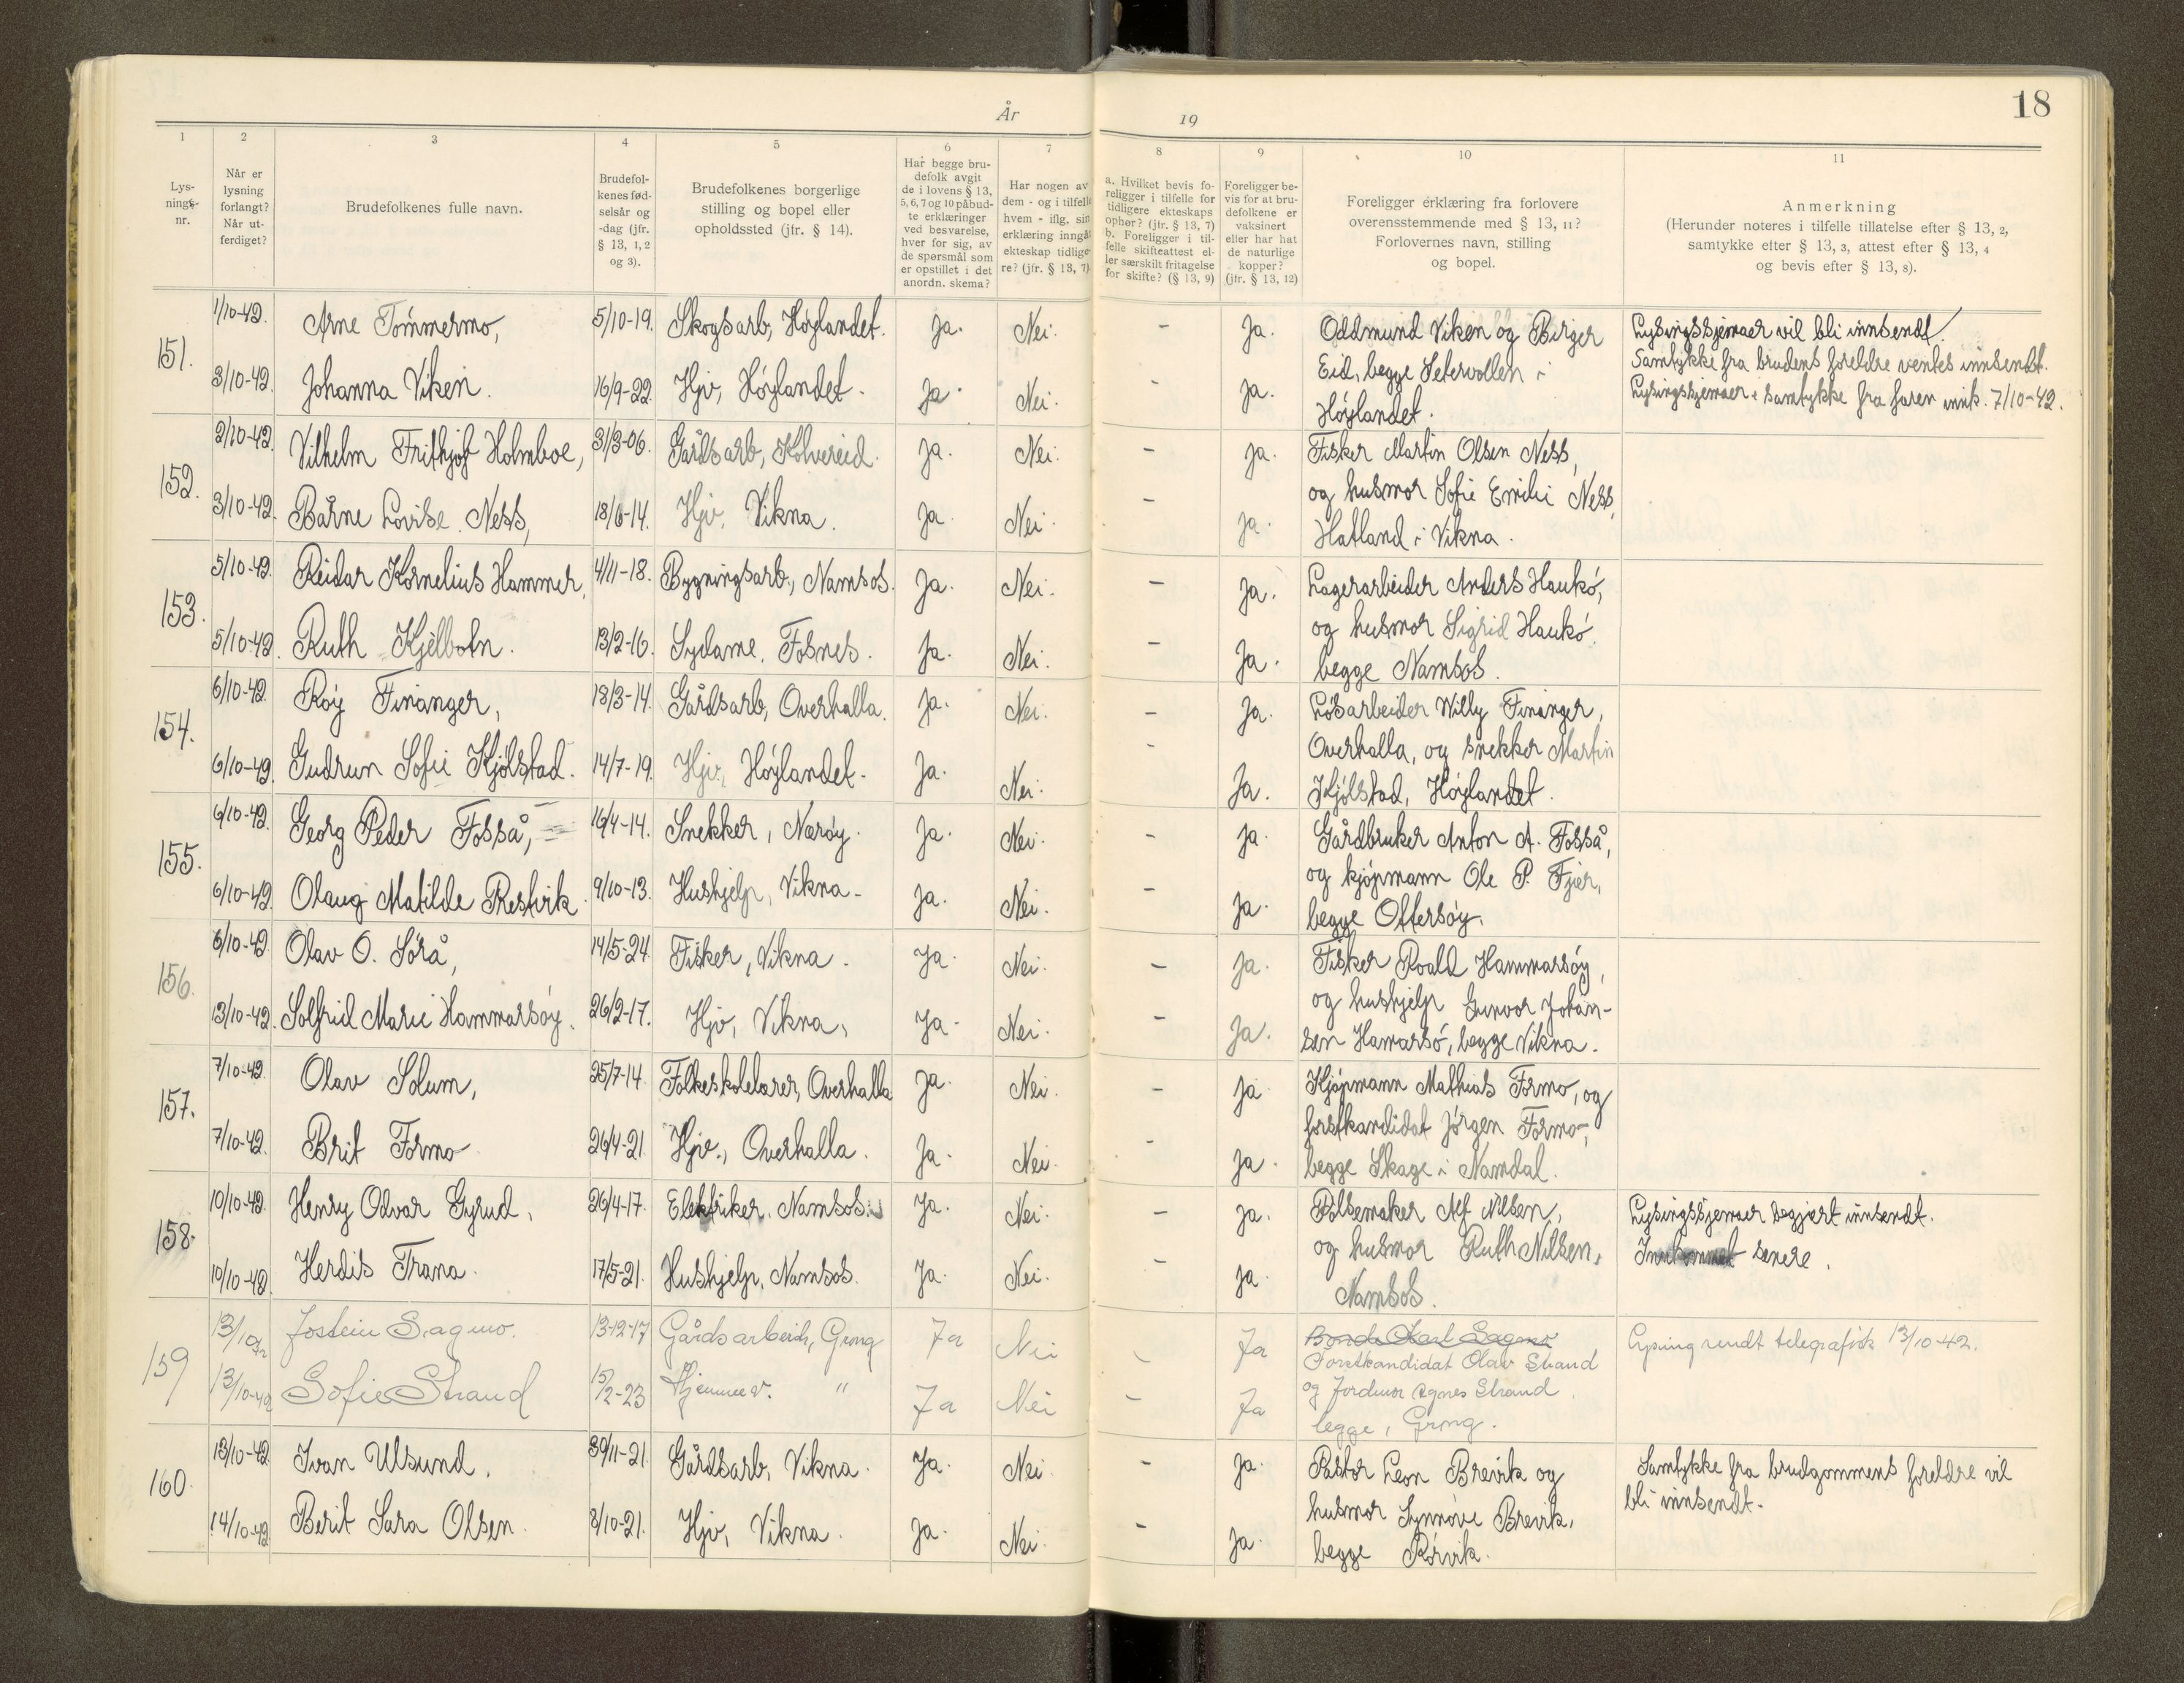 18
År
19
1
2
3
4
5
6
7
8
9
10
11
Lys-
nings-
nr.
Når er
lysning
forlangt?
Når ut-
ferdiget?
Brudefolkenes fulle navn.
Brudefol-
kenes fød-
selsår og
-dag (jfr.
§ 13, 1, 2
og 3).
Brudefolkenes borgerlige
stilling og bopel eller
opholdssted (jfr. § 14).
Har begge bru-
defolk avgit
de i lovens § 13,
5, 6, 7 og 10 påbud-
te erklæringer
ved besvarelse,
hver for sig, av
de spørsmål som
er opstillet i det
anordn. skema?
Har nogen av
dem - og i tilfelle
hvem - iflg. sin
erklæring inngåt
ekteskap tidlige-
re? (jfr. § 13, 7)
a. Hvilket bevis fo-
religger i tilfelle for
tidligere ekteskaps
ophør? (jfr. § 13, 7)
b. Foreligger i til-
felle skifteattest el-
ler særskilt fritagelse
for skifte? (§ 13, 9)
Foreligger be-
vis for at bru-
defolkene er
vaksinert
eller har hat
de naturlige
kopper?
(jfr. § 13, 12)
Foreligger erklæring fra forlovere
overensstemmende med § 13, 11?
Forlovernes navn, stilling
og bopel.
Anmerkning
(Herunder noteres i tilfelle tillatelse efter § 13, 2,
samtykke efter § 13, 3, attest efter § 13, 4
og bevis efter § 13, 8).
151.
1/10-42. Arne Tømmermo, 5/10-19. Skogsarb, Høylandet. Ja. Nei. - Ja.
3/10-42. Johanna Viken. 16/9-22. Hjv, Høylandet. Ja. Nei. - Ja.
Oddmund Viken og Birger
Eid, begge Setervollen i
Høylandet.
Lysingsskjemaer vil bli innsendt.
Samtykke fra brudens foreldre ventes innsendt.
Lysingsskjemaer + samtykke fra faren innk. 7/10-42.
152.
2/10-42. Vilhelm Frithjof Holmboe, 3/3-06. Gårdsarb, Kolvereid. Ja. Nei. - Ja.
3/10-42. Bårne Lovise Ness, 18/6-14. Hjv. Vikna. Ja. Nei. - Ja.
Fisker Martin Olsen Ness,
og husmor Sofie Emilie Ness,
Hatland i Vikna.
153.
5/10-42. Reidar Kornelius Hammer, 4/11-18. Bygningsarb., Namsos. Ja. Nei. - Ja.
5/10-42. Ruth Kjelbotn. 13/2-16. Sydame, Fosnes. Ja. Nei. - Ja.
Lagerarbeider Anders Haukø,
og husmor Sigrid Haukø.
begge Namsos.
154.
6/10-42. Roy Finanger, 18/3-14. Gårdsarb, Overhalla. Ja. Nei. - Ja.
6/10-42. Gudrun Sofie Kjølstad. 14/7-19. Hjv, Høylandet. Ja. Nei. - Ja.
Løsarbeider Willy Finanger,
Overhalla, og snekker Martin
Kjølstad, Høylandet.
155.
6/10-42. Georg Peder Fosså, 16/4-14. Snekker, Nærøy. Ja. Nei. - Ja.
6/10-42. Olaug Matilde Restvik. 9/10-13. Hushjelp, Vikna. Ja. Nei. - Ja.
Gårdbruker Anton A. Fosså,
og kjøpmann Ole P. Fjer,
begge Ottersøy.
156.
6/10-42. Olav O. Sørå, 14/5-24. Fisker, Vikna. Ja. Nei. - Ja.
13/10-42. Solfrid Marie Hammarsøy. 26/2-17. Hjv, Vikna, Ja. Nei. - Ja.
Fisker Roald Hammarsøy,
og hushjelp Gunvor Johan-
sen Hamarsø, begge Vikna.
157.
7/10-42. Olav Solum, 25/7-14. Folkeskolelærer, Overhalla Ja. Nei. - Ja
7/10-42. Brit Formo 26/4-21. Hjv., Overhalla. Ja. Nei. - Ja.
Kjøpmann Mathias Formo, og
forstkandidat Jørgen Formo,
begge Skage i Namdal.
158.
10/10-42. Henry Odvar Gyrud, 26/4-17. Elektriker, Namsos. Ja. Nei. - Ja.
10/10-42. Herdis Trana. 17/5-21. Hushjelp, Namsos. Ja. Nei. - Ja.
Pølsemaker Alf Nilsen,
og husmor Ruth Nilsen,
Namsos.
Lysingsskjemaer begjært innsendt.
Innkommet senere.
159
13/10-42 Jostein Sagmo. 13-12-17 Gårdsarbeider, Grong Ja Nei - Ja
13/10-42 Sofie Strand 15/2-23 Hjemmev. " Ja Nei - Ja
Forstkandidat Olav Strand
og Jordmor Agnes Strand
begge, Grong.
Lysing sendt telegrafisk 13/10-42.
160.
13/10-42 Ivan Ulsund. 30/11-21. Gårdsarb, Vikna. Ja. Nei. - Ja.
14/10-42 Berit Sara Olsen. 8/10-21. Hjv, Vikna. Ja. Nei. - Ja.
Pastor Leon Brevik og
husmor Synnøve Brevik,
begge Rørvik.
Samtykke fra brudgommens foreldre vil
bli innsendt.